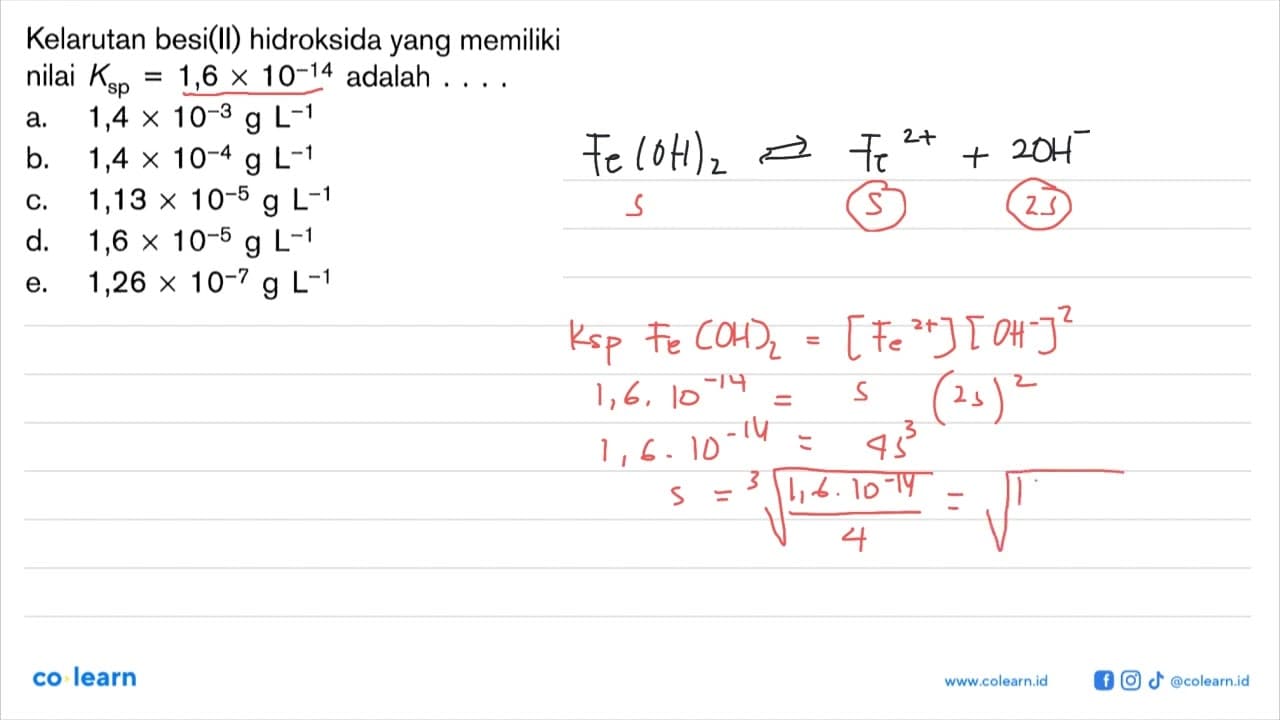 Kelarutan besi(II) hidroksida yang memiliki
nilai Ksp = 1,6 × 10⁻¹⁴ adalah . . . .
a. 1,4 × 10⁻³ g L⁻¹
b. 1,4 × 10⁻⁴ g L⁻¹
c. 1,13 × 10⁻⁵ g L⁻¹
d. 1,6 × 10⁻⁵ g L⁻¹
e. 1,26 × 10⁻⁷ g L⁻¹
Fe(OH)₂ ⇌ Fe²⁺ + 2OH⁻
s s 2s
Ksp Fe(OH)₂ = [Fe²⁺][OH⁻]²
1,6. 10⁻¹⁴ = s (2s)²
1,6. 10⁻¹⁴ = 4s³
s = ³√(1,6. 10⁻¹⁴ / 4) = √1
co learn
www.colearn.id
@colearn.id